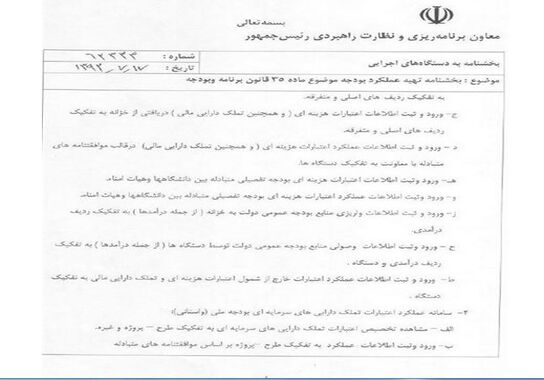 بسمه تعالی
معاون برنامه‌ریزی و نظارت راهبردی رئیس‌جمهور
بخشنامه به دستگاه‌های اجرایی
شماره :
تاریخ :
موضوع : بخشنامه تهیه عملکرد بودجه موضوع ماده ۳۵ قانون برنامه وبودجه
به تفکیک ردیف های اصلی و متفرقه.
ج- ورود و ثبت اطلاعات اعتبارات هزینه ای ( و همچنین تملک دارایی مالی ) دریافتی از خزانه به تفکیک
ردیف های اصلی و متفرقه.
د - ورود و ثبت اطلاعات عملکرد اعتبارات هزینه ای ( و همچنین تملک دارایی مالی) درقالب موافقتنامه های
متبادله با معاونت به تفکیک دستگاه ها.
هـ- ورود وثبت اطلاعات اعتبارات هزینه ای بودجه تفصیلی متبادله بین دانشگاهها وهیات امناء.
و- ورود و ثبت اطلاعات عملکرد اعتبارات هزینه ای بودجه تفصیلی متبادله بین دانشگاهها وهیات امناء.
ز- ورود و ثبت اطلاعات واریزی منابع بودجه عمومی دولت به خزانه ( از جمله درآمدها ) به تفکیک ردیف
درآمدی.
ح - ورود وثبت اطلاعات وصولی منابع بودجه عمومی دولت توسط دستگاه ها ( از جمله درآمدها ) به تفکیک
ردیف درآمدی و دستگاه .
ط- ورود و ثبت اطلاعات عملکرد اعتبارات خارج از شمول اعتبارات هزینه ای و تملک دارایی مالی به تفکیک
دستگاه .
۲- سامانه عملکرد اعتبارات تملک دارایی های سرمایه ای بودجه ملی (واستانی):
الف – مشاهده تخصیص اعتبارات تملک دارایی های سرمایه ای به تفکیک طرح – پروژه و غیره.
ب- ورود وثبت اطلاعات عملکرد به تفکیک طرح –پروژه بر اساس موافقتنامه های متبادله